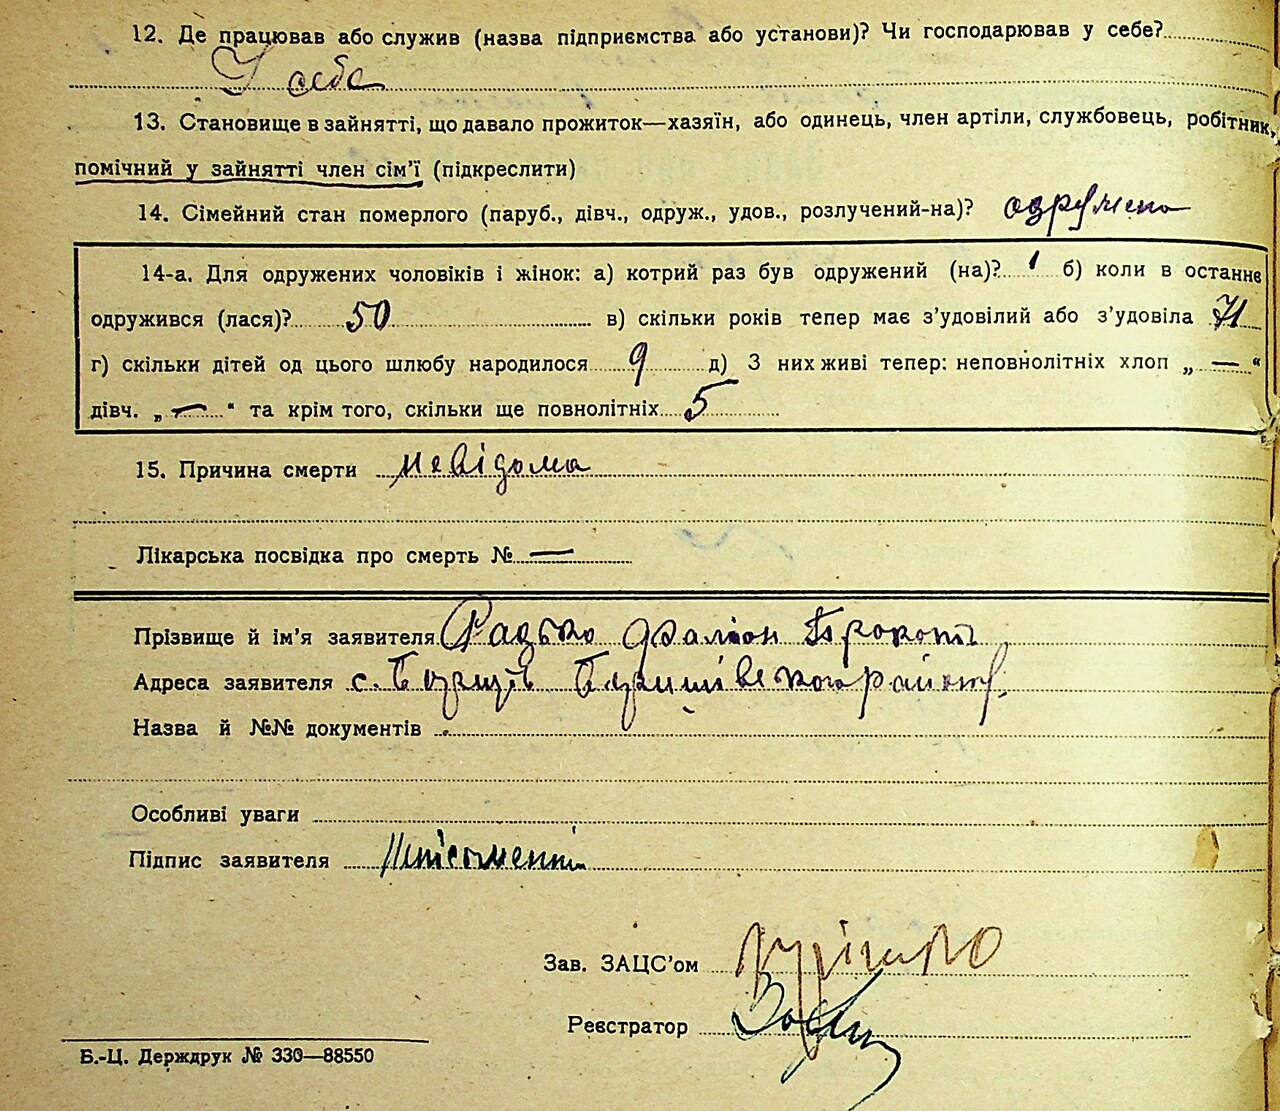 12. Де працював або служив (назва підприємства або установи)? Чи господарював у себе?
У себе
13. Становище в зайнятті, що давало прожиток—хазяїн, або одинець, член артіли, службовець, робітник,
помічний у зайнятті член сім'ї (підкреслити)
14. Сімейний стан померлого (паруб., дівч., одруж., удов., розлучений-на)? одружена
14-а. Для одружених чоловіків і жінок: а) котрий раз був одружений (на)? 1 б) коли в останнє
одружився (лася)? 50 в) скільки років тепер має з'удовілий або з'удовіла 71
г) скільки дітей од цього шлюбу народилося 9 д) З них живі тепер: неповнолітніх хлоп „ — “
дівч. „ — “ та крім того, скільки ще повнолітніх 5
15. Причина смерти невідома
Лікарська посвідка про смерть № —
Прізвище й ім'я заявителя Радько
Адреса заявителя с.
Назва й №№ документів
Особливі уваги
Підпис заявителя
Зав. ЗАЦС'ом
Реєстратор
Б.-Ц. Держдрук № 330—88550